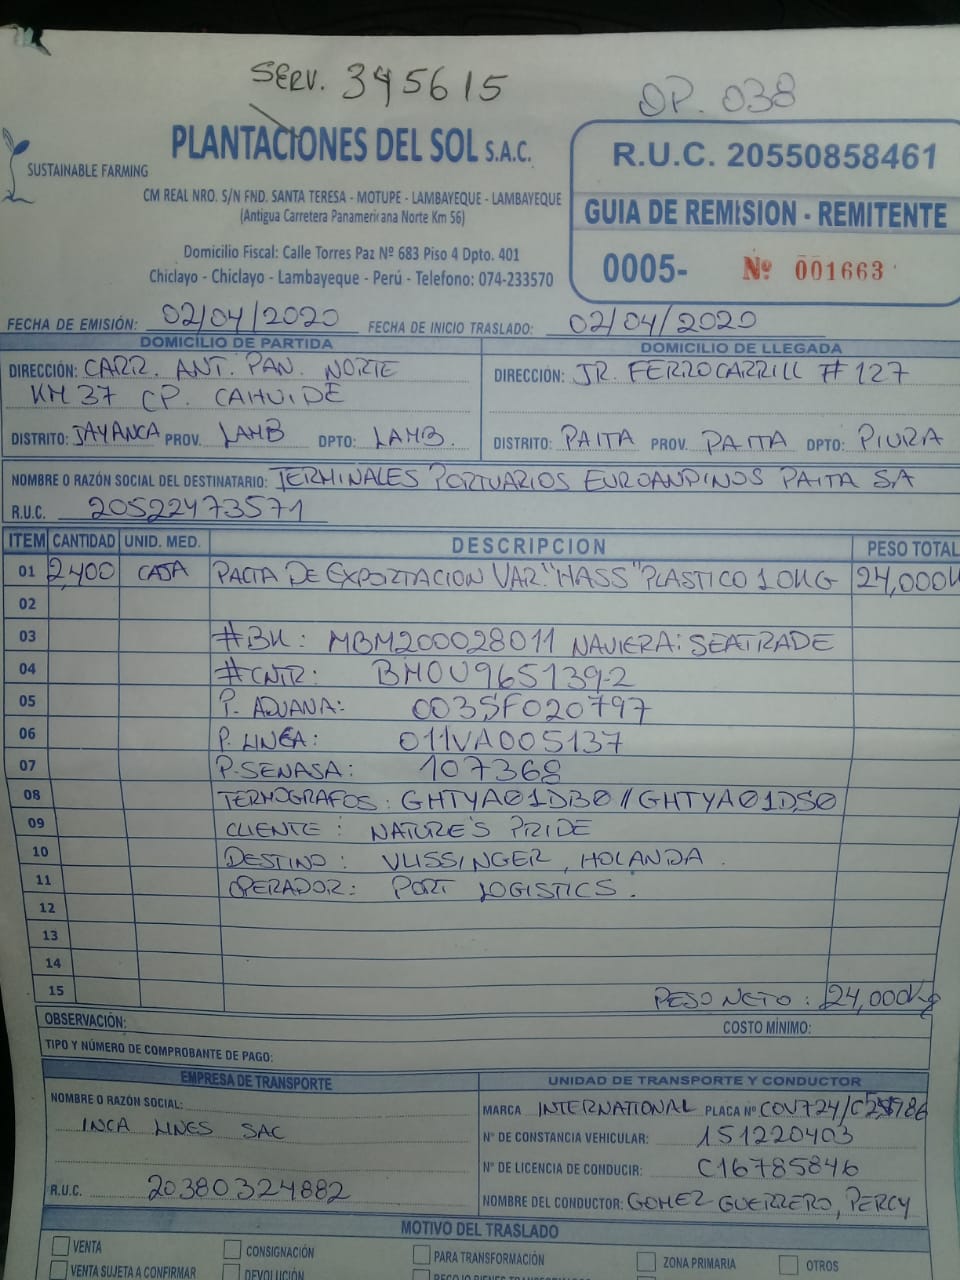 SERV. 345615
OP. 038
SUSTAINABLE FARMING
PLANTACIONES DEL SOL S.A.C.
CM REAL NRO. S/N FND. SANTA TERESA - MOTUPE - LAMBAYEQUE - LAMBAYEQUE
(Antigua Carretera Panamericana Norte Km 56)
Domicilio Fiscal: Calle Torres Paz Nº 683 Piso 4 Dpto. 401
Chiclayo - Chiclayo - Lambayeque - Perú - Telefono: 074-233570
R.U.C. 20550858461
GUIA DE REMISION - REMITENTE
0005- Nº 001663
FECHA DE EMISIÓN: 02/04/2020 FECHA DE INICIO TRASLADO: 02/04/2020
DOMICILIO DE PARTIDA
DIRECCIÓN: CARR. ANT. PAN. NORTE
KM 37 CP. CAHUIDE
DISTRITO: JAYANCA PROV. LAMB DPTO: LAMB.
DOMICILIO DE LLEGADA
DIRECCIÓN: JR. FERROCARRILL # 127
DISTRITO: PAITA PROV. PAITA DPTO: PIURA
NOMBRE O RAZÓN SOCIAL DEL DESTINATARIO: TERMINALES PORTUARIOS EUROANDINOS PAITA SA
R.U.C. 20522473571
ITEM CANTIDAD UNID. MED. DESCRIPCION PESO TOTAL
01 2,400 CAJA PALTA DE EXPORTACION VAR. "HASS" PLASTICO 10KG 24,000K
02
03 #BK: MBM200028011 NAVIERA: SEATRADE
04 #CNTR: BMOU965139-2
05 P. ADUANA: 003SF020797
06 P. LINEA: 011VA005137
07 P. SENASA: 107368
08 TERMOGRAFOS: GHTYA01DB0 // GHTYA01DS0
09 CLIENTE: NATURE'S PRIDE
10 DESTINO: VLISSINGER, HOLANDA.
11 OPERADOR: PORT LOGISTICS.
12
13
14
15 PESO NETO: 24,000Kg
OBSERVACIÓN: COSTO MÍNIMO:
TIPO Y NÚMERO DE COMPROBANTE DE PAGO:
EMPRESA DE TRANSPORTE
NOMBRE O RAZÓN SOCIAL:
INCA LINES SAC
R.U.C. 20380324882
UNIDAD DE TRANSPORTE Y CONDUCTOR
MARCA INTERNATIONAL PLACA Nº COV724/
Nº DE CONSTANCIA VEHICULAR: 151220403
Nº DE LICENCIA DE CONDUCIR: C16785846
NOMBRE DEL CONDUCTOR: GOMEZ GUERRERO, PERCY
MOTIVO DEL TRASLADO
VENTA CONSIGNACIÓN PARA TRANSFORMACIÓN ZONA PRIMARIA OTROS
VENTA SUJETA A CONFIRMAR DEVOLUCIÓN